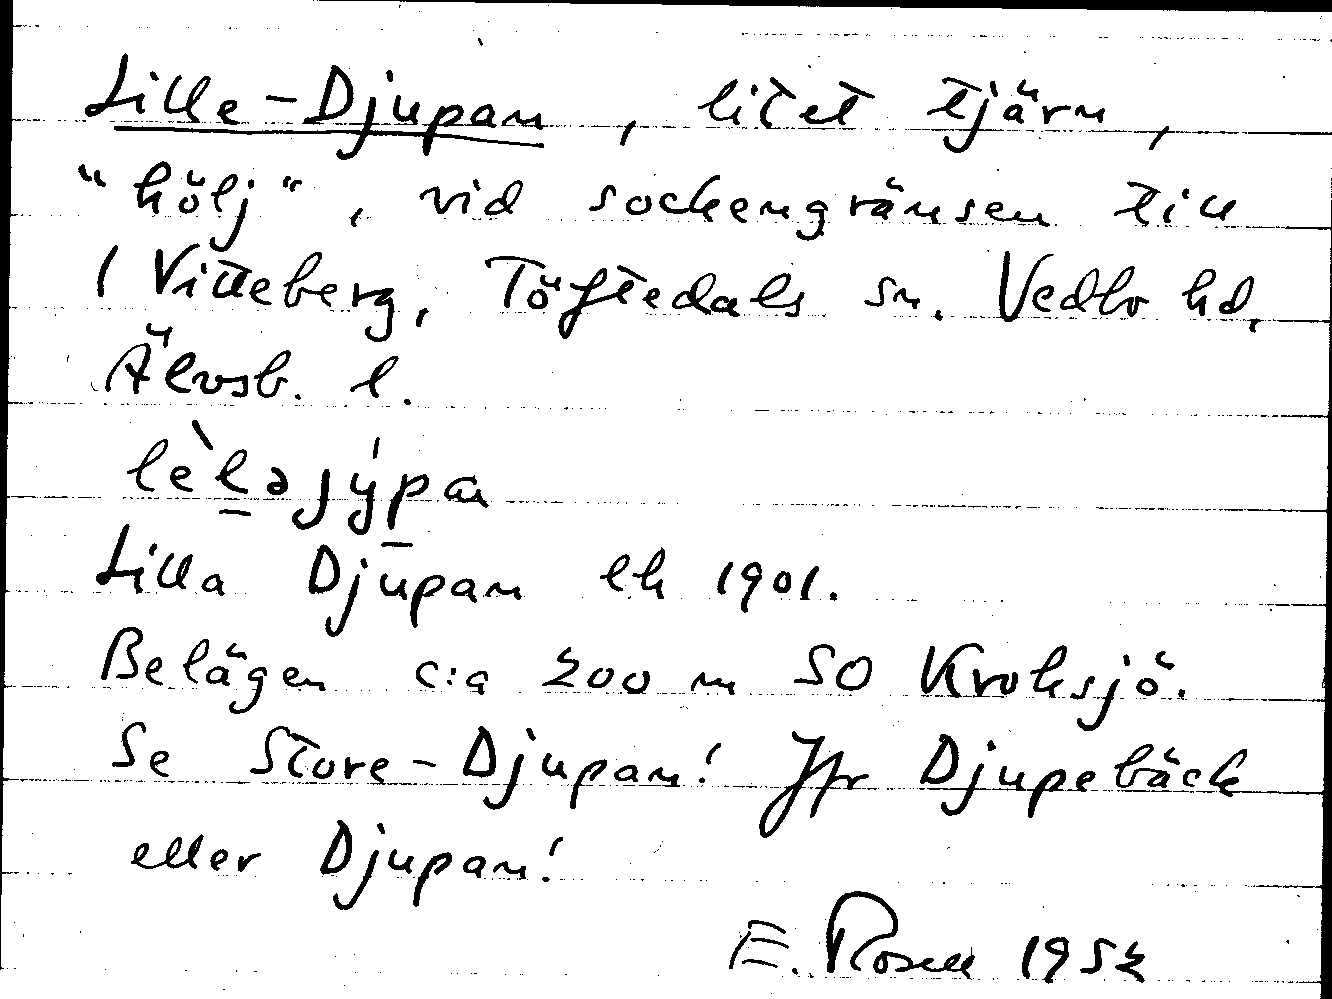 Lille-Djupan, litet tjärn,
"hölj", vid sockengränsen till
l Vitteberg, Töftedals sn. Vedbo hd,
Älvsb. l.
lèləjýpan
Lilla Djupan ek 1901.
Belägen c:a 200 m SO Kroksjö.
Se Store-Djupan! Jfr Djupebäck
eller Djupan!
E. Rosell 1952